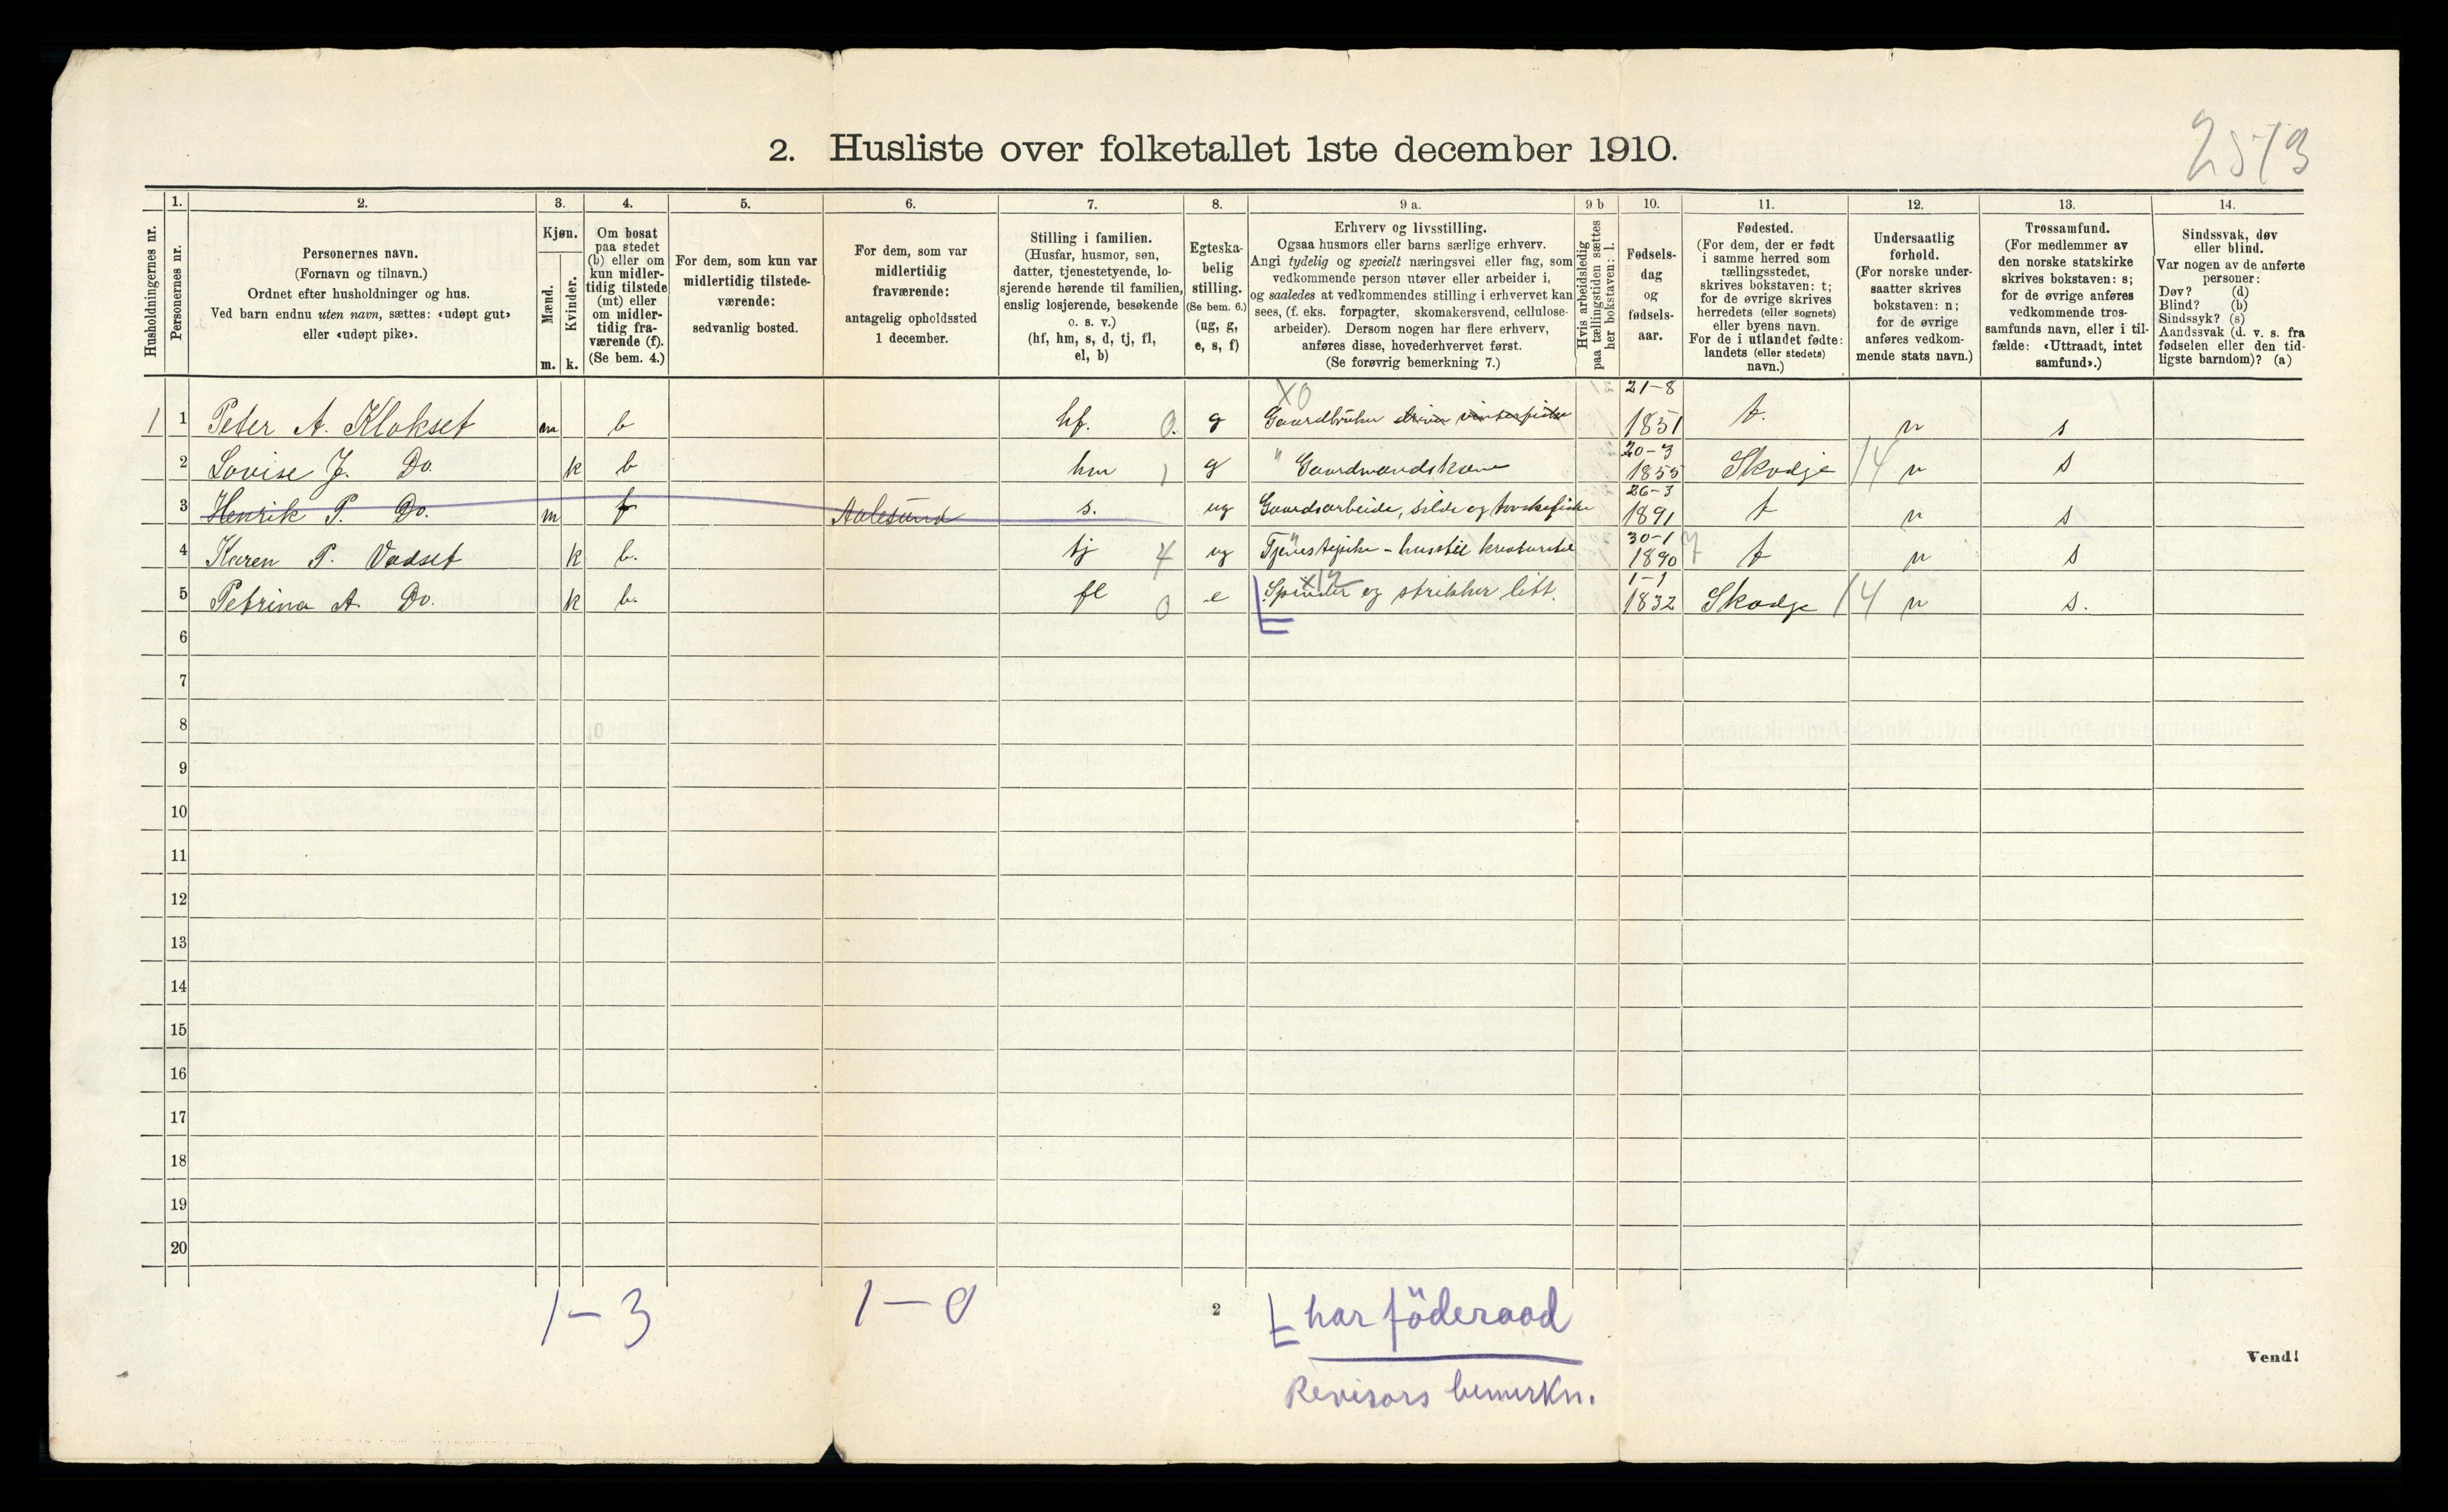 2573
2. Husliste over folketallet 1ste december 1910.
1. 2. 3. 4. 5. 6. 7. 8. 9 a. 9 b 10. 11. 12. 13. 14.
Husholdningernes nr.
Personernes nr.
Personernes navn.
(Fornavn og tilnavn.)
Ordnet efter husholdninger og hus.
Ved barn endnu uten navn, sættes: «udøpt gut»
eller «udøpt pike».
Kjøn.
Mænd.
m.
Kvinder.
k.
Om bosat
paa stedet
(b) eller om
kun midler-
tidig tilstede
(mt) eller
om midler-
tidig fra-
værende (f).
(Se bem. 4.)
For dem, som kun var
midlertidig tilstede-
værende:
sedvanlig bosted.
For dem, som var
midlertidig
fraværende:
antagelig opholdssted
1 december.
Stilling i familien.
(Husfar, husmor, søn,
datter, tjenestetyende, lo-
sjerende hørende til familien,
enslig losjerende, besøkende
o. s. v.)
(hf, hm, s, d, tj, fl,
el, b)
Egteska-
belig
stilling.
(Se bem. 6.)
(ug, g,
e, s, f)
Erhverv og livsstilling.
Ogsaa husmors eller barns særlige erhverv.
Angi tydelig og specielt næringsvei eller fag, som
vedkommende person utøver eller arbeider i,
og saaledes at vedkommendes stilling i erhvervet kan
sees, (f. eks. forpagter, skomakersvend, cellulose-
arbeider). Dersom nogen har flere erhverv,
anføres disse, hovederhvervet først.
(Se forøvrig bemerkning 7.)
Hvis arbeidsledig
paa tællingstiden sættes
her bokstaven: l.
Fødsels-
dag
og
fødsels-
aar.
Fødested.
(For dem, der er født
i samme herred som
tællingsstedet,
skrives bokstaven: t;
for de øvrige skrives
herredets (eller sognets)
eller byens navn.
For de i utlandet fødte:
landets (eller stedets)
navn.)
Undersaatlig
forhold.
(For norske under-
saatter skrives
bokstaven: n;
for de øvrige
anføres vedkom-
mende stats navn.)
Trossamfund.
(For medlemmer av
den norske statskirke
skrives bokstaven: s;
for de øvrige anføres
vedkommende tros-
samfunds navn, eller i til-
fælde: «Uttraadt, intet
samfund».)
Sindssvak, døv
eller blind.
Var nogen av de anførte
personer:
Døv? (d)
Blind? (b)
Sindssyk? (s)
Aandssvak (d. v. s. fra
fødselen eller den tid-
ligste barndom)? (a)
X0 21-8
1 1 Peter A. Klokset m b hf. 0. g Gaardbruker driver vinterfiske 1851 t. n s
2 Lovise J. Do. k b hm 1 g " Gaardmandskone 20-3 1855 Skodje 14 n s
3 Henrik P. Do. m f Aalesund s. ug Gaardsarbeide, silde og torskefiske 26-3 1891 t n s
4 Karen P. Vadset k b. tj 4 ug Tjenestepike - husstel kreaturstel 30-1 1890 7 t n s
5 Petrina A. Do. k b. fl 0 e X12 Spinder og strikker litt. 1-1 1832 Skodje 14 n s.
6
7
8
9
10
11
12
13
14
15
16
17
18
19
20
1-3 1-0 2 har föderaad
Vend!
Revisors bemerkn.